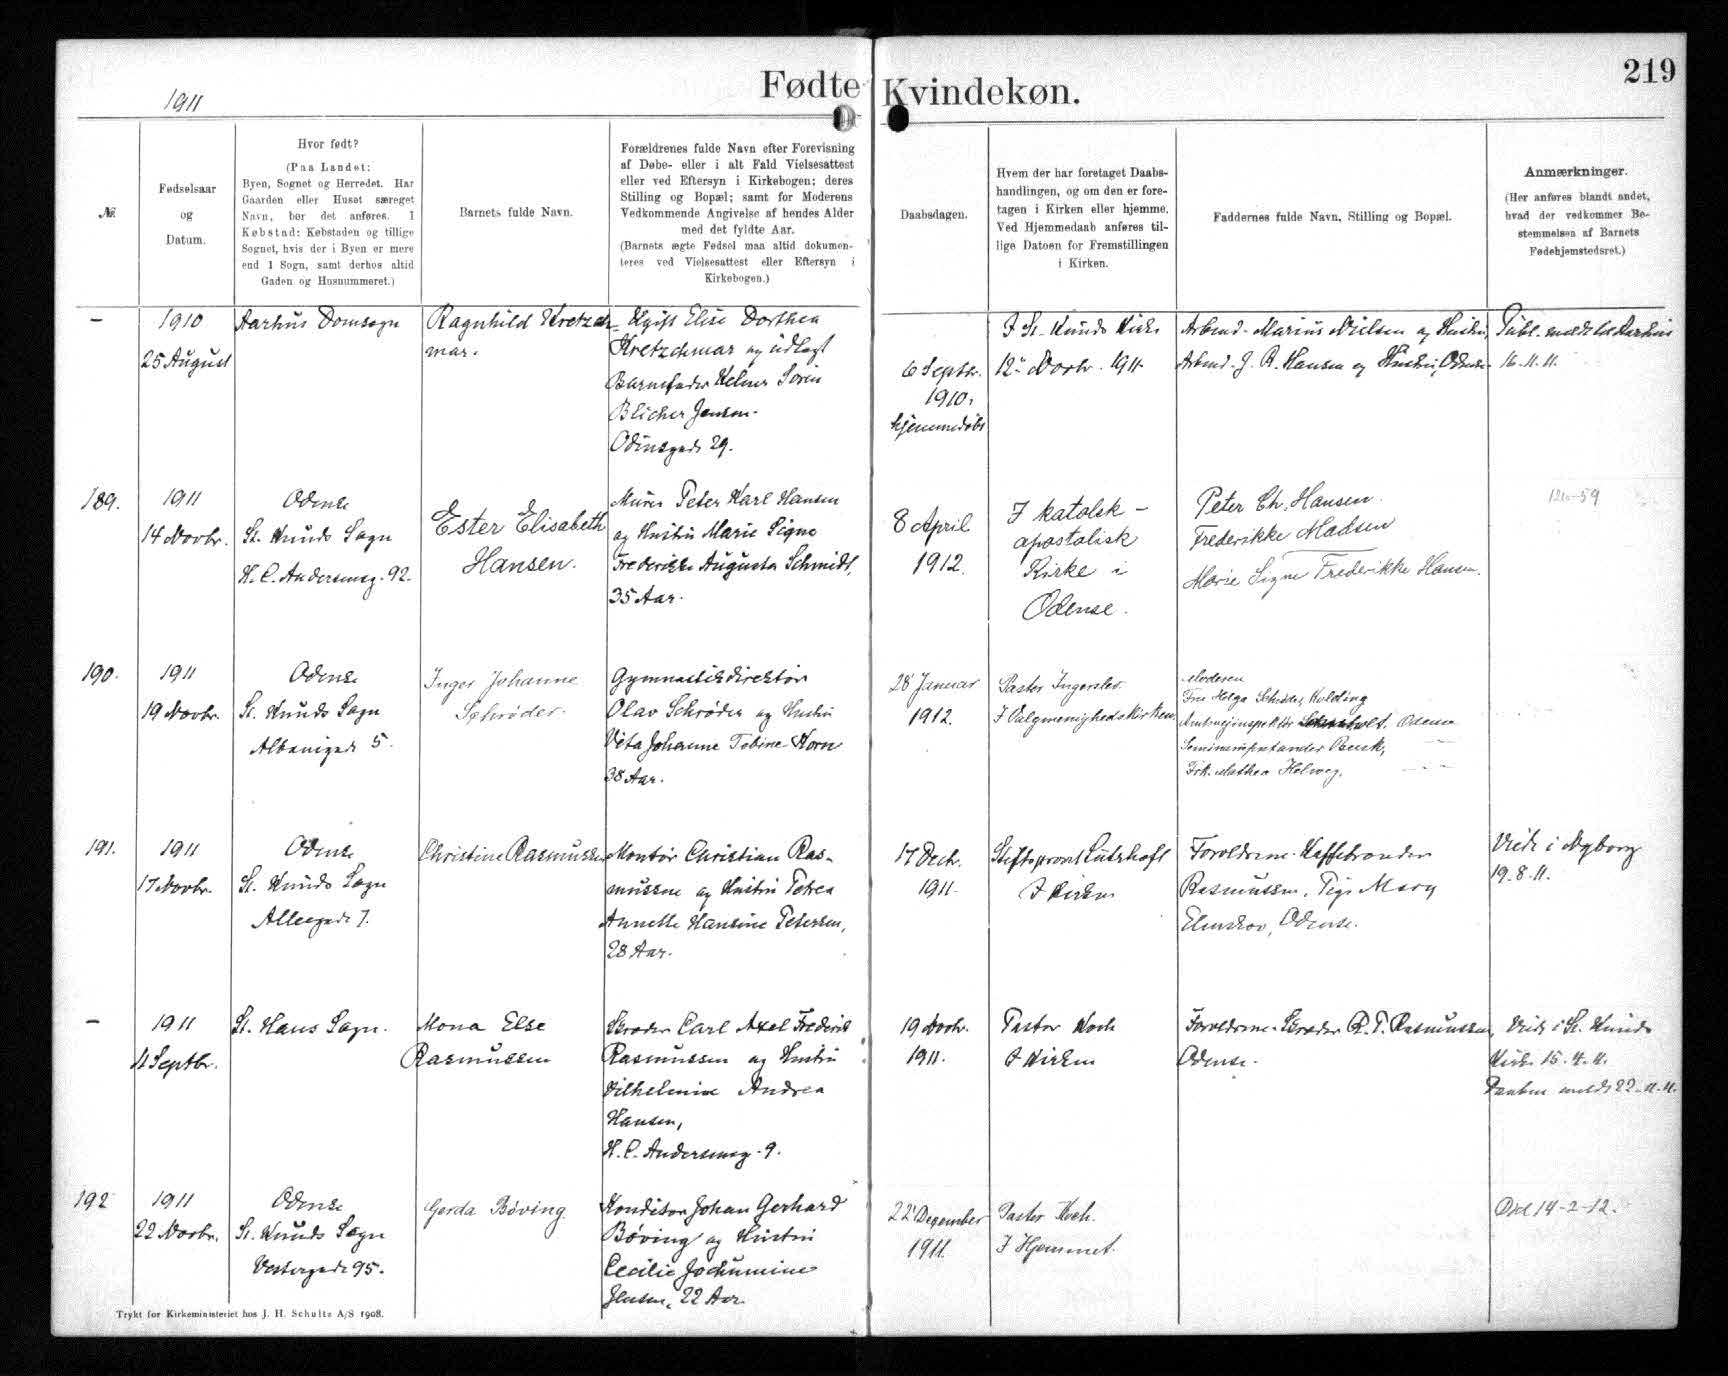 1911
Fødte Kvindekøn.
219
№.
Fødselsaar
og
Datum.
Hvor født?
(Paa Landet:
Byen, Sognet og Herredet. Har
Gaarden eller Huset særeget
Navn, bør det anføres. I
Købstad: Købstaden og tillige
Sognet, hvis der i Byen er mere
end 1 Sogn, samt derhos altid
Gaden og Husnummeret.)
Barnets fulde Navn.
Forældrenes fulde Navn efter Forevisning
af Døbe- eller i alt Fald Vielsesattest
eller ved Eftersyn i Kirkebogen; deres
Stilling og Bopæl; samt for Moderens
Vedkommende Angivelse af hendes Alder
med det fyldte Aar.
(Barnets ægte Fødsel maa altid dokumen-
teres ved Vielsesattest eller Eftersyn i
Kirkebogen.)
Daabsdagen.
Hvem der har foretaget Daabs-
handlingen, og om den er fore-
tagen i Kirken eller hjemme.
Ved Hjemmedaab anføres til-
lige Datoen for Fremstillingen
i Kirken.
Faddernes fulde Navn, Stilling og Bopæl.
Anmærkninger.
(Her anføres blandt andet,
hvad der vedkommer Be-
stemmelsen af Barnets
Fødehjemstedsret.)
–
1910
25 August
Aarhus Domsogn
Ragnhild Kretzch-
mar.
Ugift Elise Dorthea
Kretzchmar og udlagt
Barnefader Helmer Sørin
Blicher Jensen.
Odinsgade 29.
6 Septbr.
1910,
hjemmedøbt
I St. Knuds Kirke
12te Novbr. 1911.
Arbmd. Marius Nielsen og Hustru,
Arbmd. J. R. Hansen og Hustru, Odense
16-11-11.
189.
1911
14 Novbr.
Odense
St. Knuds Sogn
H. C. Andersensg. 92.
Ester Elisabeth
Hansen.
Murer Peter Karl Hansen
og Hustru Marie Signe
Frederikke Augusta Schmidt,
35 Aar.
8 April
1912.
I katolsk –
apostolisk
Kirke i
Odense.
Peter Ch. Hansen.
Frederikke Madsen
Marie Signe Frederikke Hansen.
190.
1911
19 Novbr.
Odense
St. Knuds Sogn
Albanigade 5.
Inger Johanne
Schrøder.
Gymnastikdirektør
Olav Schrøder og Hustru
Vita Johanne Tobine Horn
38 Aar.
28 Januar
1912.
Pastor Ingerslev.
I Valgmenighedskirken.
Moderen
Fru Helga Schrøder, Kolding
Amtsvejinspektør Odense
Seminarieforstander
Frk. Mathea Helweg.
191.
1911
17 Novbr.
Odense
St. Knuds Sogn
Allegade 7.
Christine Rasmussen
Montør Christian Ras-
mussen og Hustru Petrea
Annette Hansine Petersen,
28 Aar.
17 Decbr.
1911.
Stiftsprovst Lützhøft
I Kirken
Forældrene. Kaffebrænder
Rasmussen, Pige Mary
Elmskov, Odense.
Viede i Nyborg
19.8.11.
–
1911
4 Septbr.
St. Hans Sogn.
Mona Else
Rasmussen
Skræder Carl Axel Frederik
Rasmussen og Hustru
Vilhelmine Andrea
Hansen,
H. C. Andersensg. 9.
19 Novbr.
1911.
Pastor Koch
I Kirken
Forældrene. Skræder R. P. Rasmussen,
Odense.
Viede i St. Knuds
Kirke 15.4.11.
Daaben meldt 22-11-11.
192
1911
22 Novbr.
Odense
St. Knuds Sogn
Vestergade 95.
Gerda Bøving.
Konditor Johan Gerhard
Bøving og Hustru
Cecilie Jochumine
Jensen, 22 Aar.
22 December
1911.
Pastor Koch.
I Hjemmet.
Død 14-2-12.
Trykt for Kirkeministeriet hos J. H. Schultz A/S 1908.